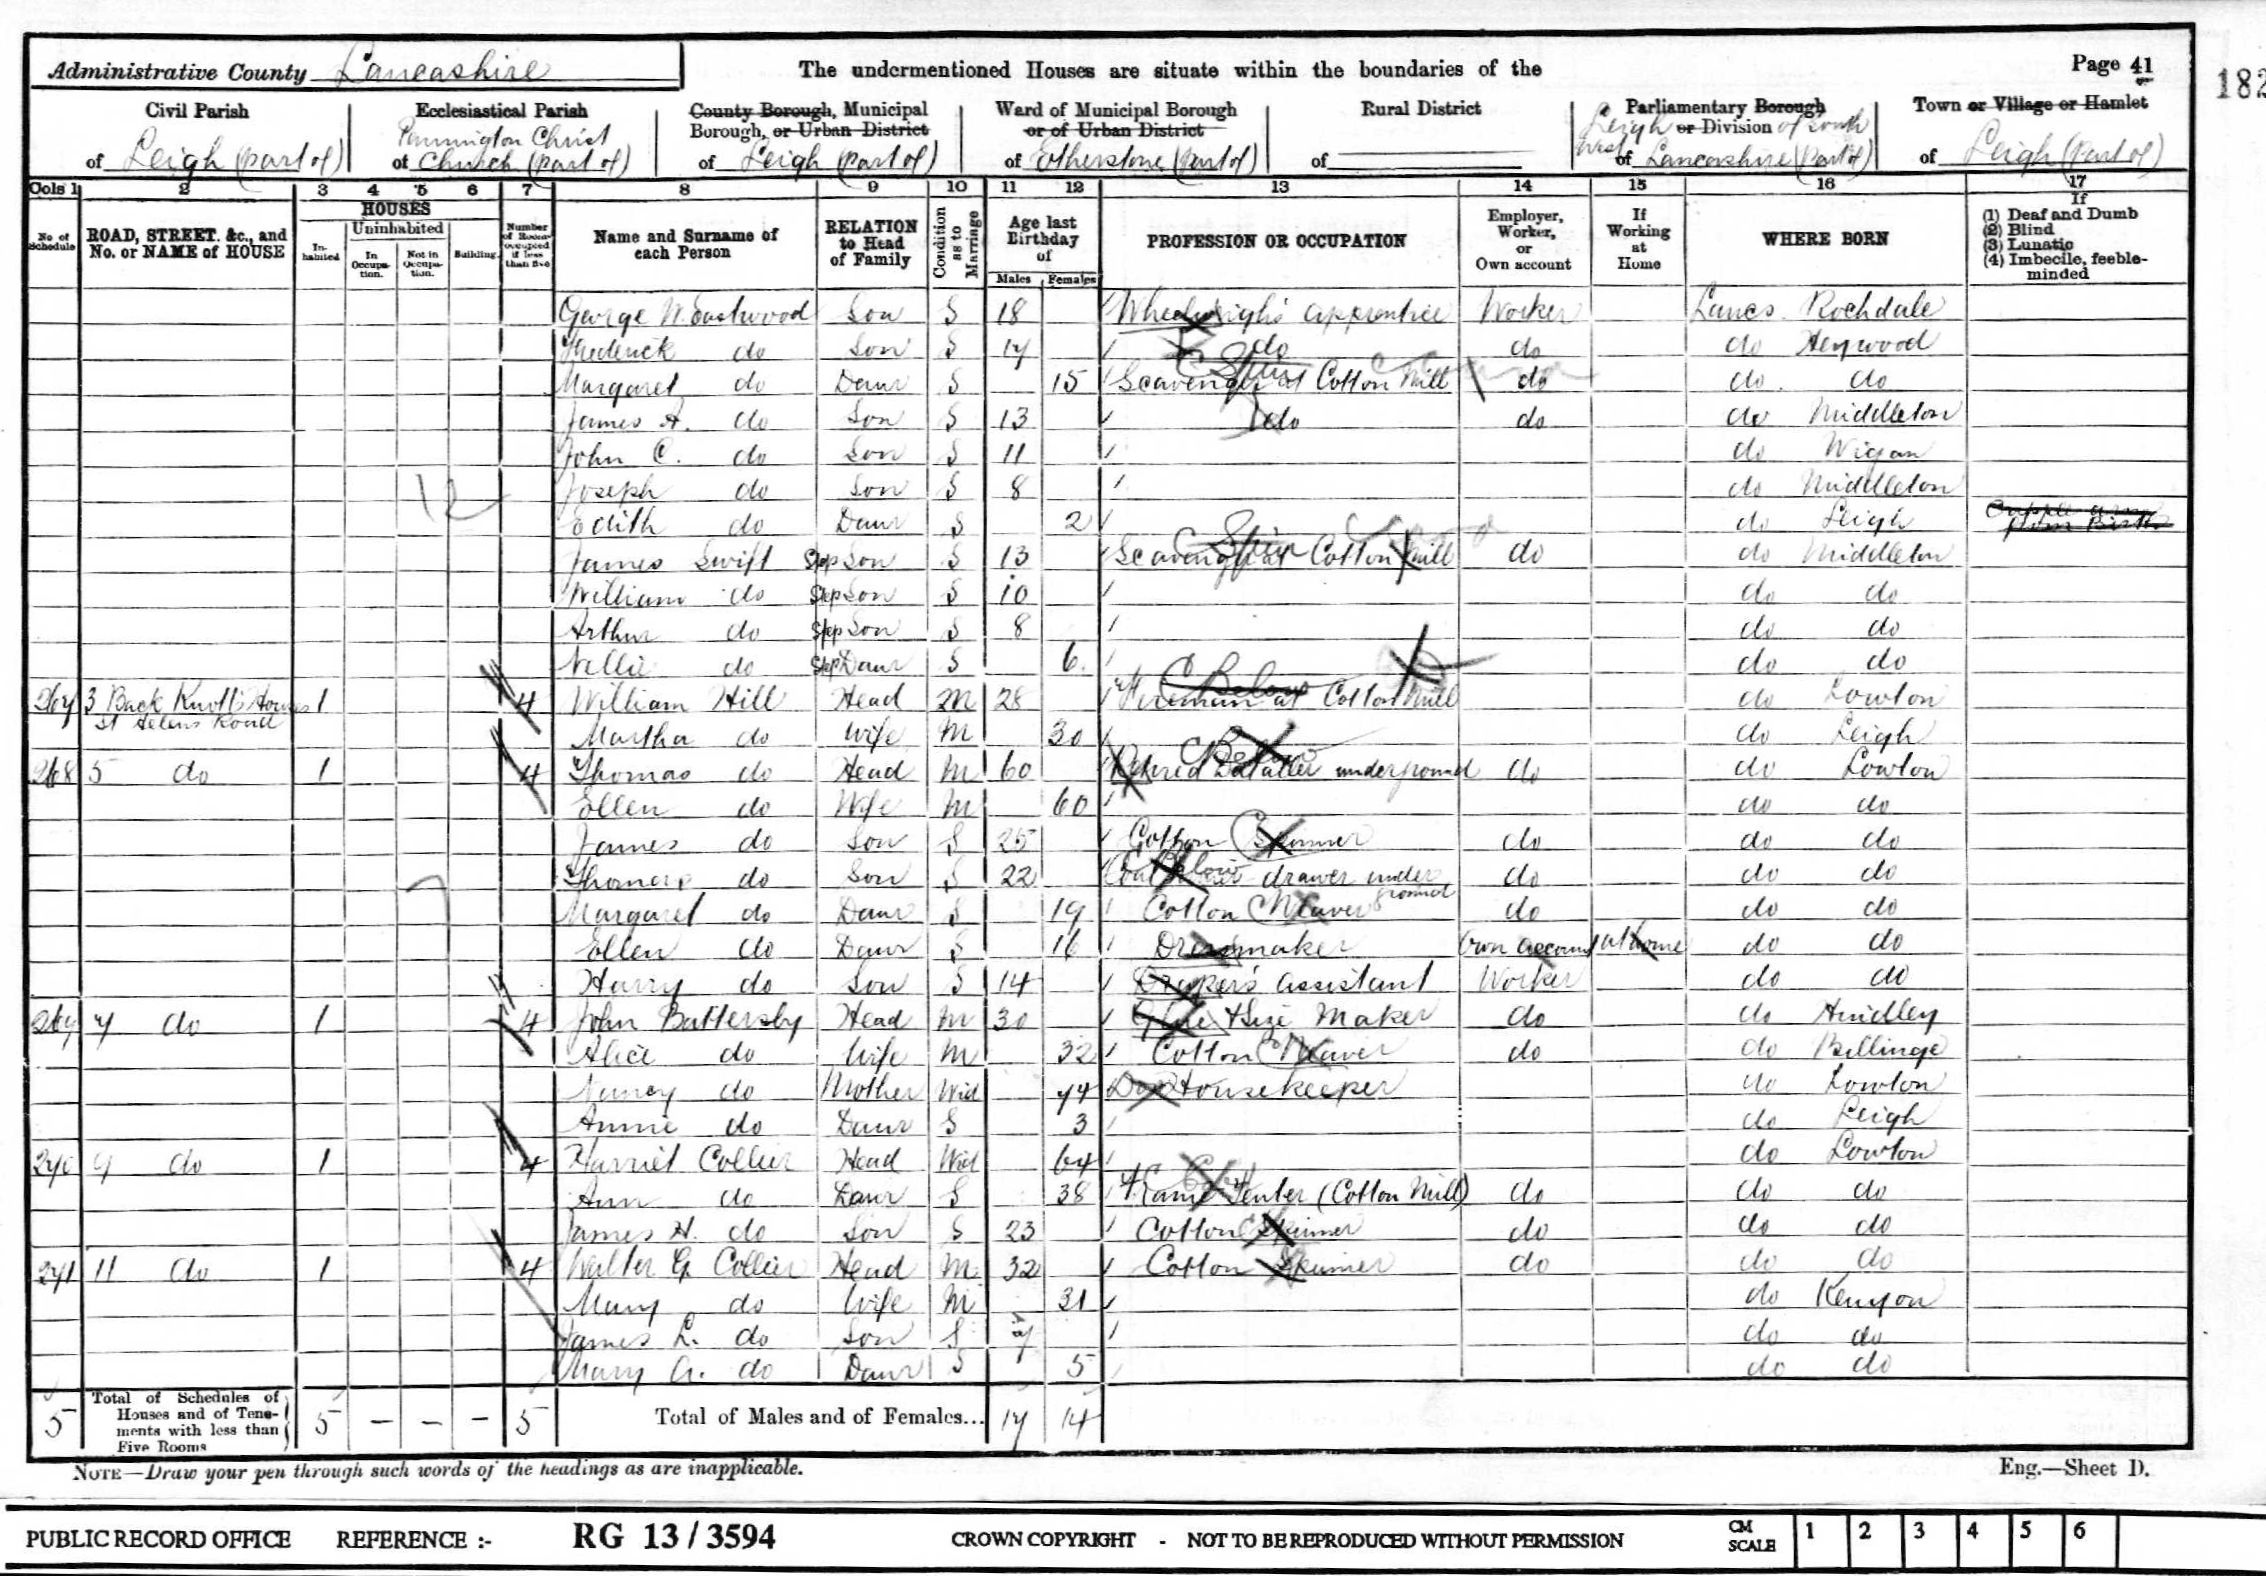 Administrative County Lancashire
The undermentioned Houses are situate within the boundaries of the
Page 41
182
Civil Parish of Leigh (part of)
Ecclesiastical Parish of Pennington Christ Church (part of)
County Borough, Municipal Borough, or Urban District of Leigh (part of)
Ward of Municipal Borough or of Urban District of Etherstone (part of)
Rural District of
Parliamentary Borough or Division of Leigh of South West Lancashire (part of)
Town or Village or Hamlet of Leigh (part of)
Cols 1 2 3 4 5 6 7 8 9 10 11 12 13 14 15 16 17
No of Schedule
ROAD, STREET, &c., and No. or NAME of HOUSE
HOUSES
Inhabited
Uninhabited
In Occupation.
Not in Occupation.
Building
Number of Rooms occupied if less than five
Name and Surname of each Person
RELATION to Head of Family
Condition as to Marriage
Age last Birthday of
Males Females
PROFESSION OR OCCUPATION
Employer, Worker, or Own account
If Working at Home
WHERE BORN
If
(1) Deaf and Dumb
(2) Blind
(3) Lunatic
(4) Imbecile, feeble-minded
George W. Eastwood Son S 18 Wheelwright's apprentice Worker Lancs. Rochdale
Frederick do Son S 17 do do do Heywood
Margaret do Daur S 15 Scavenger at Cotton Mill do do do
James A. do Son S 13 do do do Middleton
John C. do Son S 11 do Wigan
Joseph do Son S 8 do Middleton
12
Edith do Daur S 2 do Leigh Cripple arm from Birth
James Swift Step Son S 13 Scavenger at Cotton Mill do do Middleton
William do Step Son S 10 do do
Arthur do Step Son S 8 do do
Nellie do Step Daur S 6 do do
267 3 Back Knott's Houses St Helens Road 1 4 William Hill Head M 28 Fireman at Cotton Mill do Lowton
Martha do Wife M 30 do Leigh
268 5 do 1 4 Thomas do Head M 60 Retired Dataller underground do do Lowton
Ellen do Wife M 60 do do
James do Son S 25 Cotton Spinner do do do
7
Thomas do Son S 22 Coal drawer under ground do do do
Margaret do Daur S 19 Cotton Weaver do do do
Ellen do Daur S 16 Dressmaker Own account at home do do
Harry do Son S 14 Draper's assistant Worker do do
269 7 do 1 4 John Battersby Head M 30 Glue & Size Maker do do Hindley
Alice do Wife M 32 Cotton Weaver do do Billinge
Nancy do Mother Wid 74 Housekeeper do Lowton
Annie do Daur S 3 do Leigh
270 9 do 1 4 Harriet Collier Head Wid 64 do Lowton
Ann do Daur S 38 Frame Tenter (Cotton Mill) do do do
James H. do Son S 23 Cotton Spinner do do do
271 11 do 1 4 Walter G. Collier Head M 32 Cotton Spinner do do do
Mary do Wife M 31 do Kenyon
James L. do Son S 7 do do
Mary A. do Daur S 5 do do
5 Total of Schedules of Houses and of Tenements with less than Five Rooms 5 – – – 5 Total of Males and of Females... 17 14
NOTE—Draw your pen through such words of the headings as are inapplicable.
Eng.—Sheet D.
PUBLIC RECORD OFFICE REFERENCE :- RG 13 / 3594 CROWN COPYRIGHT - NOT TO BE REPRODUCED WITHOUT PERMISSION CM SCALE 1 2 3 4 5 6